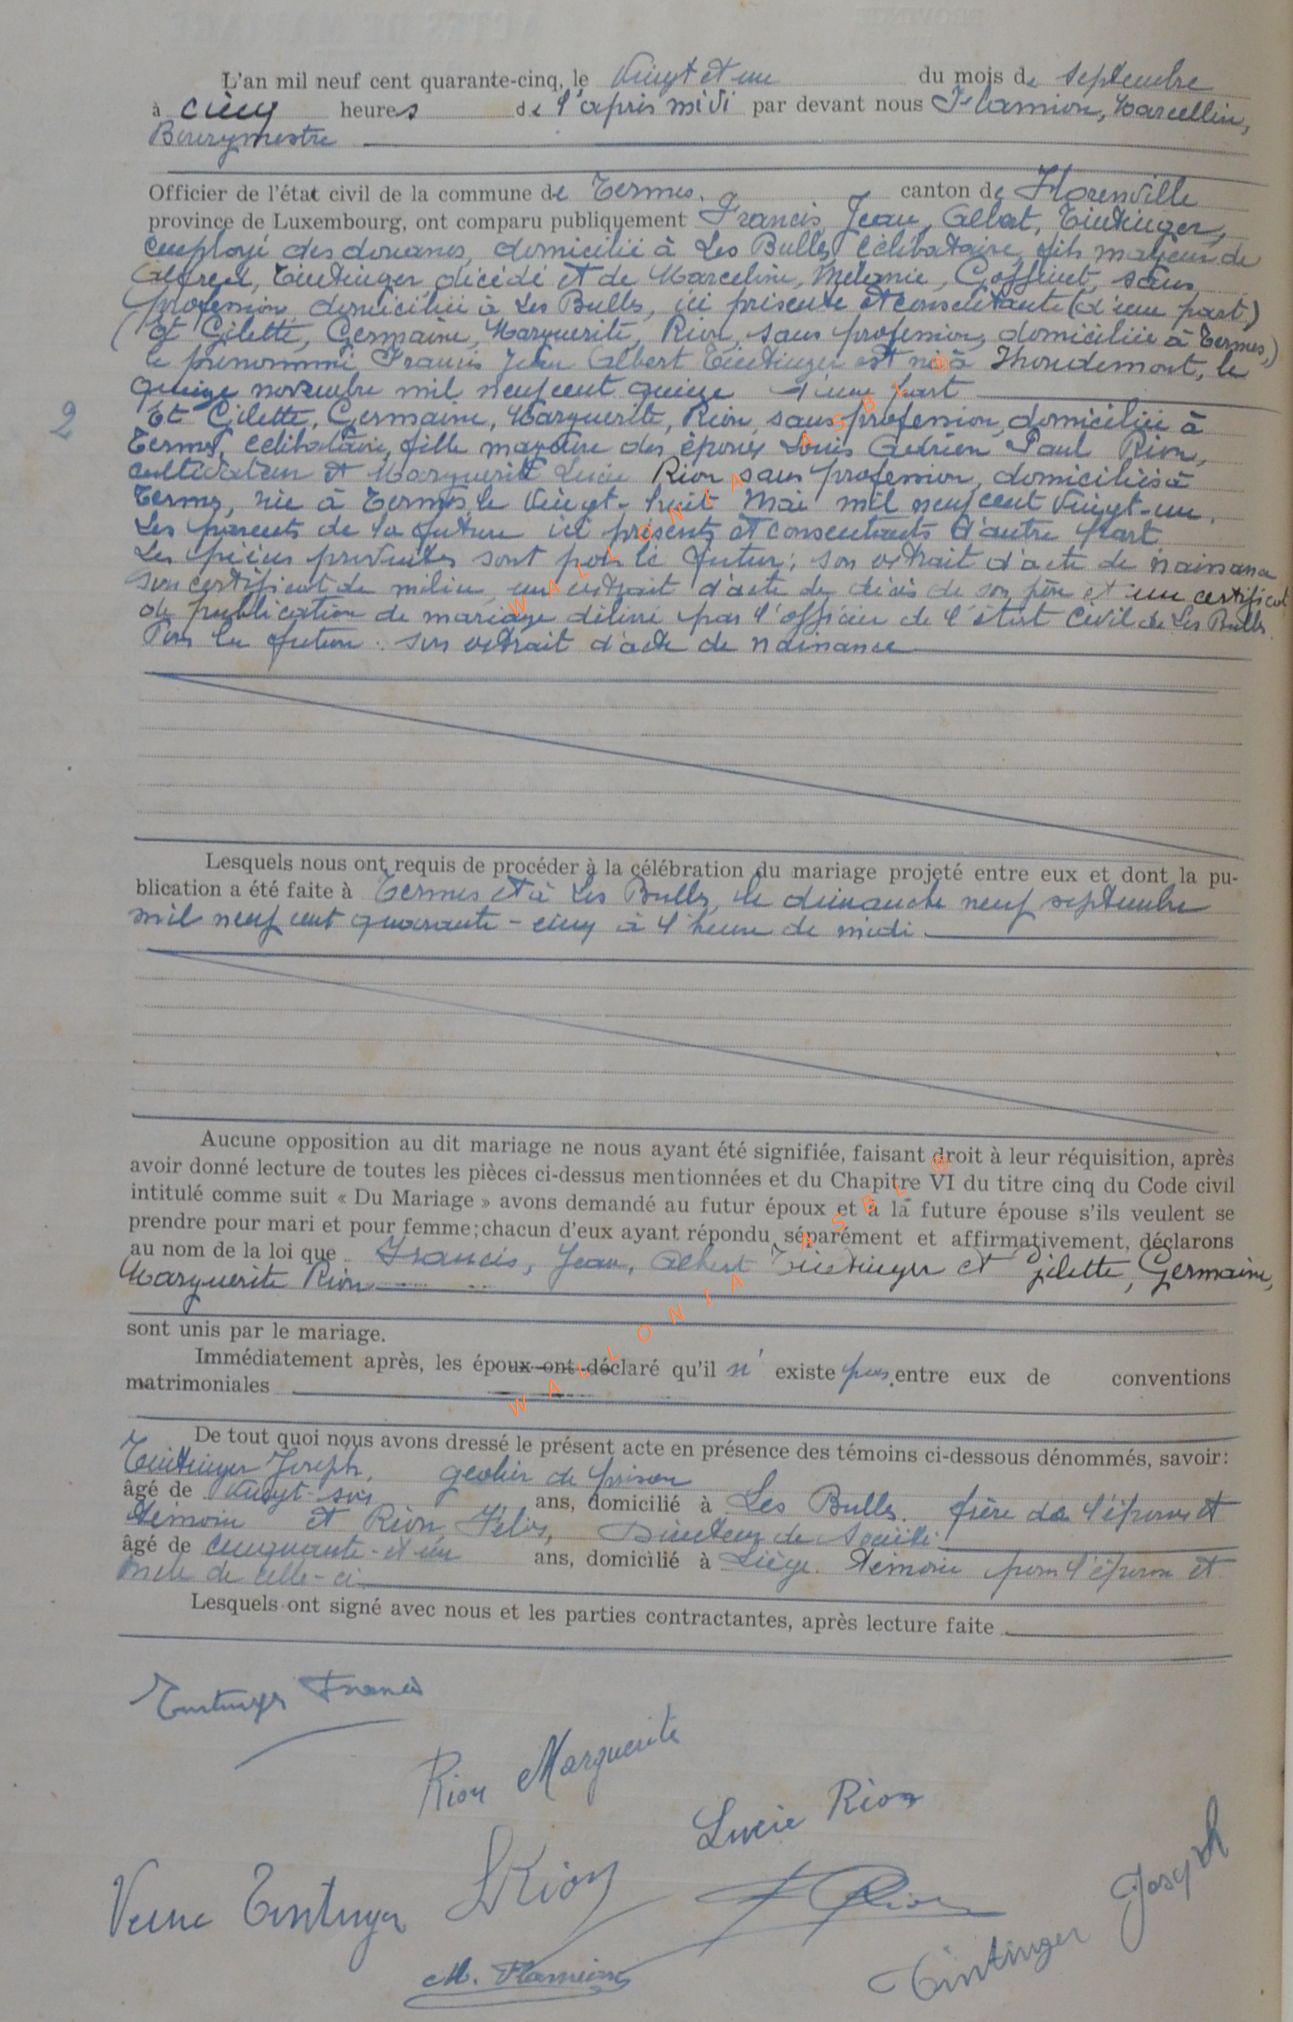 L'an mil neuf cent quarante-cinq, le vingt et un du mois de septembre
à cinq heures de l'après midi par devant nous Flamion, Marcellin,
Bourgmestre
Officier de l'état civil de la commune de Termes, canton de Florenville
province de Luxembourg, ont comparu publiquement Francis, Jean, Albert, Tintinger,
employé des douanes, domicilié à Les Bulles, célibataire, fils majeur de
Alfred, Tintinger décédé et de Marceline, Mélanie, Goffinet, sans
profession, domiciliée à Les Bulles, ici présente et consentante (d'une part)
(Et Gilette, Germaine, Marguerite, Rion, sans profession, domiciliée à Termes,)
le prénommé Francis Jean Albert Tintinger est né à Thondemont, le
quinze novembre mil neuf cent quinze d'une part
2
Et Gilette, Germaine, Marguerite, Rion, sans profession, domiciliée à
Termes, célibataire, fille majeure des époux Louis Adrien Paul Rion,
cultivateur et Marguerite Lucie Rion sans profession, domiciliés à
Termes, née à Termes, le vingt-huit Mai mil neuf cent vingt-un.
Les parents de la future ici présents et consentants d'autre part
Les pièces produites sont pour le futur : son extrait d'acte de naissance
son certificat de milice, un extrait d'acte de décès de son père et un certificat
de publication de mariage délivré par l'officier de l'état civil de Les Bulles.
Pour la future : son extrait d'acte de naissance
Lesquels nous ont requis de procéder à la célébration du mariage projeté entre eux et dont la pu-
blication a été faite à Termes et à Les Bulles, le dimanche neuf septembre
mil neuf cent quarante-cinq à l'heure de midi.
Aucune opposition au dit mariage ne nous ayant été signifiée, faisant droit à leur réquisition, après
avoir donné lecture de toutes les pièces ci-dessus mentionnées et du Chapitre VI du titre cinq du Code civil
intitulé comme suit « Du Mariage » avons demandé au futur époux et à la future épouse s'ils veulent se
prendre pour mari et pour femme; chacun d'eux ayant répondu séparément et affirmativement, déclarons
au nom de la loi que Francis, Jean, Albert Tintinger et Gilette, Germaine,
Marguerite Rion
sont unis par le mariage.
Immédiatement après, les époux ont déclaré qu'il n' existe pas entre eux de conventions
matrimoniales
De tout quoi nous avons dressé le présent acte en présence des témoins ci-dessous dénommés, savoir:
Tintinger Joseph, geolier de prison
âgé de vingt-six ans, domicilié à Les Bulles. frère de l'époux et
témoin et Rion, Félix, Directeur de Société
âgé de cinquante-et-un ans, domicilié à Liège. témoin pour l'épouse et
oncle de celle-ci
Lesquels ont signé avec nous et les parties contractantes, après lecture faite
Tintinger Francis
Rion Marguerite
Lucie Rion
Tintinger Joseph
Veuve Tintinger
L Rion
F Rion
M. Flamion
WALLONIA ASBL ©
WALLONIA ASBL ©